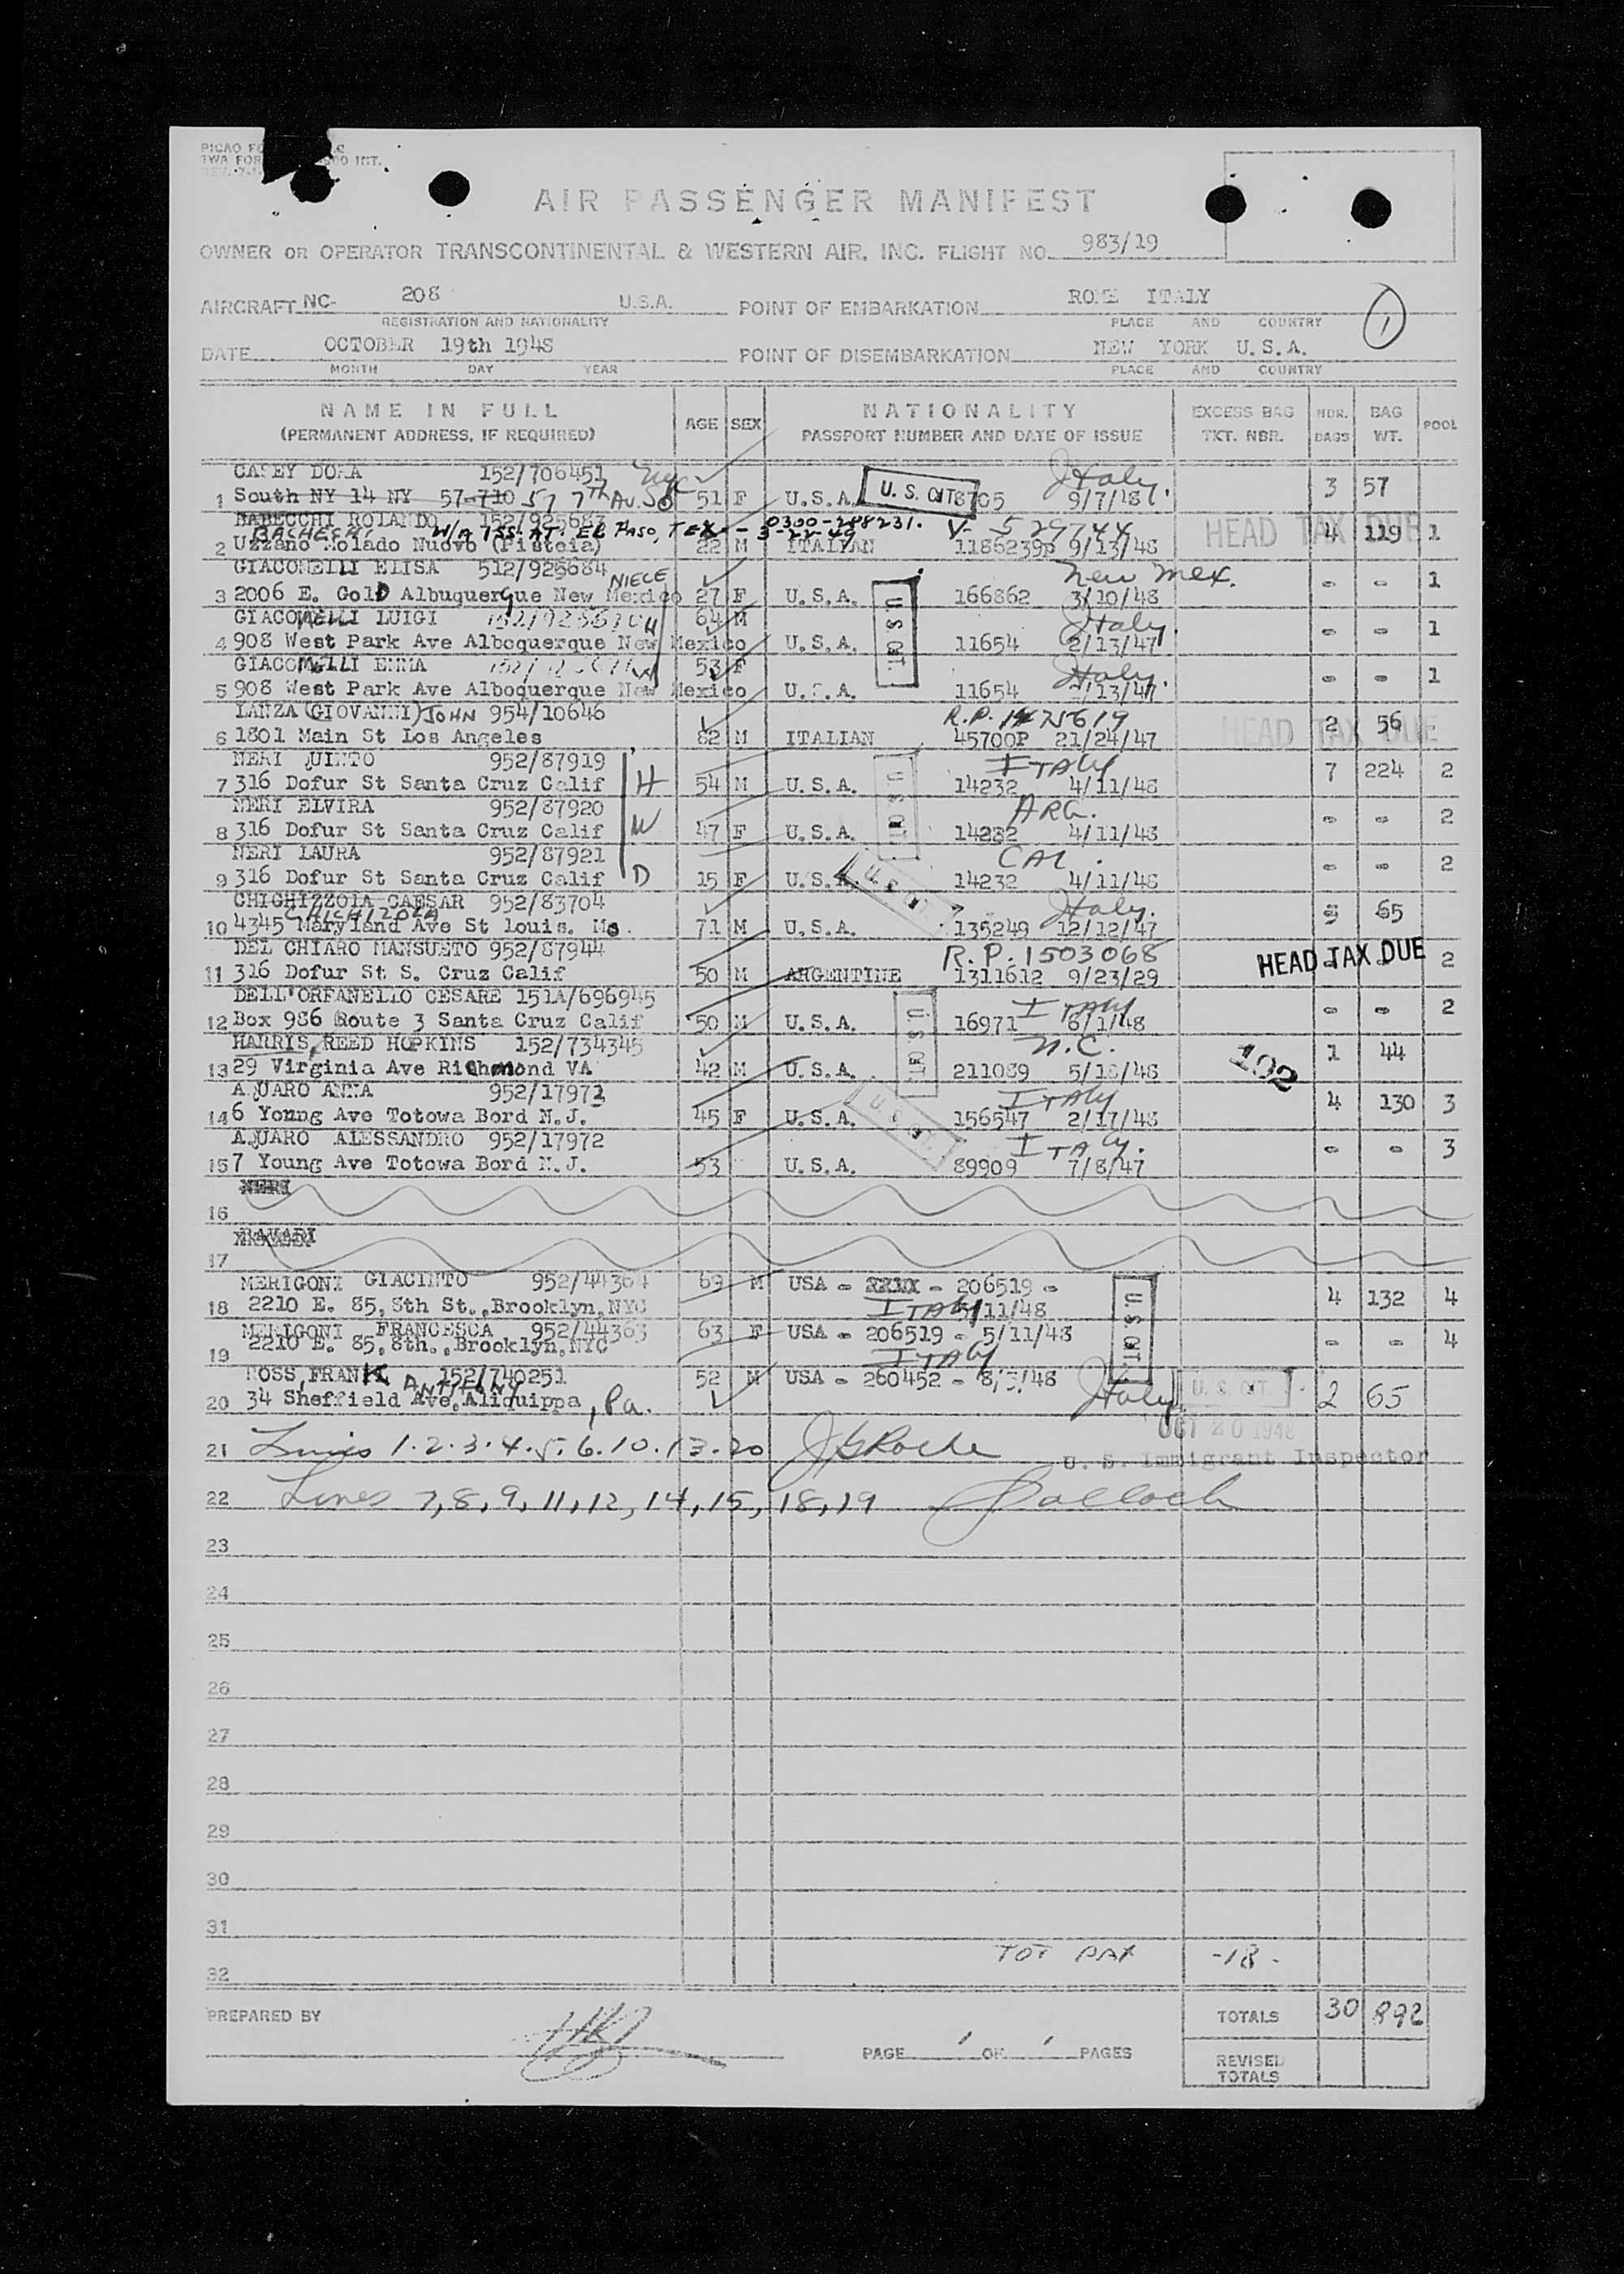 AIR PASSENGER MANIFEST
OWNER OR OPERATOR TRANSCONTINENTAL & WESTERN AIR, INC. FLIGHT NO. 983/19
AIRCRAFT NC- 208 U.S.A. POINT OF EMBARKATION ROME ITALY
REGISTRATION AND NATIONALITY PLACE AND COUNTRY
1
DATE OCTOBER 19th 1948 POINT OF DISEMBARKATION NEW YORK U.S.A.
MONTH DAY YEAR PLACE AND COUNTRY
NAME IN FULL AGE SEX NATIONALITY EXCESS BAG NBR. BAG POOL
(PERMANENT ADDRESS, IF REQUIRED) PASSPORT NUMBER AND DATE OF ISSUE TKT. NBR. BAGS WT.
CASEY DORA 152/706451 Italy.
1 South NY 14 NY 57-710 57 7th Av. So 51 F U.S.A. U.S. CIT. 8705 9/7/48 3 57
BABECCHI ROLANDO 152/925685 0300-288231. V- 529744 HEAD TAX DUE
BACHECHI W/A ISS. AT. EL PASO, TEX - 3-22-49 4 119 1
2 Uzzano Molado Nuovo (Pistoia) 22 M ITALIAN 1186239P 9/13/48
GIACOMELLI ELISA 512/925684 NIECE New Mex.
3 2006 E. Gold Albuquerque New Mexico 27 F U.S.A. 166862 3/10/48 - - 1
GIACOMELLI LUIGI H 64 M Italy.
4 908 West Park Ave Alboquerque New Mexico U.S.A. 11654 2/13/47 - - 1
GIACOMELLI EMMA W 53 F Italy.
5 908 West Park Ave Alboquerque New Mexico U.S.A. 11654 2/13/47 - - 1
U.S. CIT.
LANZA (GIOVANNI) JOHN 954/10646 R.P. 1475619 HEAD TAX DUE
6 1801 Main St Los Angeles 62 M ITALIAN 45700P 21/24/47 2 56
NERI QUINTO 952/87919 ITALY
7 316 Dofur St Santa Cruz Calif H 54 M U.S.A. 14232 4/11/48 7 224 2
NERI ELVIRA 952/87920 ARG.
8 316 Dofur St Santa Cruz Calif W 47 F U.S.A. 14232 4/11/48 - - 2
U.S. CIT.
NERI LAURA 952/87921 CAL.
9 316 Dofur St Santa Cruz Calif D 15 F U.S.A. 14232 4/11/48 - - 2
U.S. CIT.
CHIGHIZZOLA CAESAR 952/83704 Italy.
CHICHIZOLA
10 4345 Maryland Ave St louis. Mo. 71 M U.S.A. 135249 12/12/47 3 65
DEL CHIARO MANSUETO 952/87944 R.P. 1503068 HEAD TAX DUE
11 316 Dofur St S. Cruz Calif 50 M ARGENTINE 1311612 9/23/29 - - 2
DELL'ORFANELLO CESARE 151A/696945 ITALY
12 Box 986 Route 3 Santa Cruz Calif 50 M U.S.A. 16971 6/1/48 - - 2
U.S. CIT.
HARRIS, REED HOPKINS 152/734345 N.C. 102
13 29 Virginia Ave Richmond VA 42 M U.S.A. 211089 5/18/48 1 44
AQUARO ANNA 952/17971 ITALY
14 6 Young Ave Totowa Bord N.J. 45 F U.S.A. 156547 2/17/48 4 130 3
U.S. CIT.
AQUARO ALESSANDRO 952/17972 ITALY.
15 7 Young Ave Totowa Bord N.J. 53 U.S.A. 89909 7/8/47 - - 3
NERI
16
17
MERIGONI GIACINTO 952/44364 69 M USA - - 206519 -
18 2210 E. 85, 8th St., Brooklyn, NYC ITALY 5/11/48 4 132 4
MERIGONI FRANCESCA 952/44363 63 F USA - 206519 - 5/11/48 - - 4
19 2210 E. 85, 8th., Brooklyn, NYC ITALY
U.S. CIT.
ROSS, FRANK ANTHONY 152/740251 52 M USA - 260452 - 8/3/48 Italy U.S. CIT. 2 65
20 34 Sheffield Ave, Aliquippa, Pa.
OCT 20 1948
21 Lines 1.2.3.4.5.6.10.13.20 J G Roche U. S. Immigrant Inspector
22 Lines 7,8,9,11,12,14,15,18,19
23
24
25
26
27
28
29
30
31
TOT PAX -18-
32
PREPARED BY TOTALS 30 892
PAGE 1 OF 1 PAGES
REVISED TOTALS